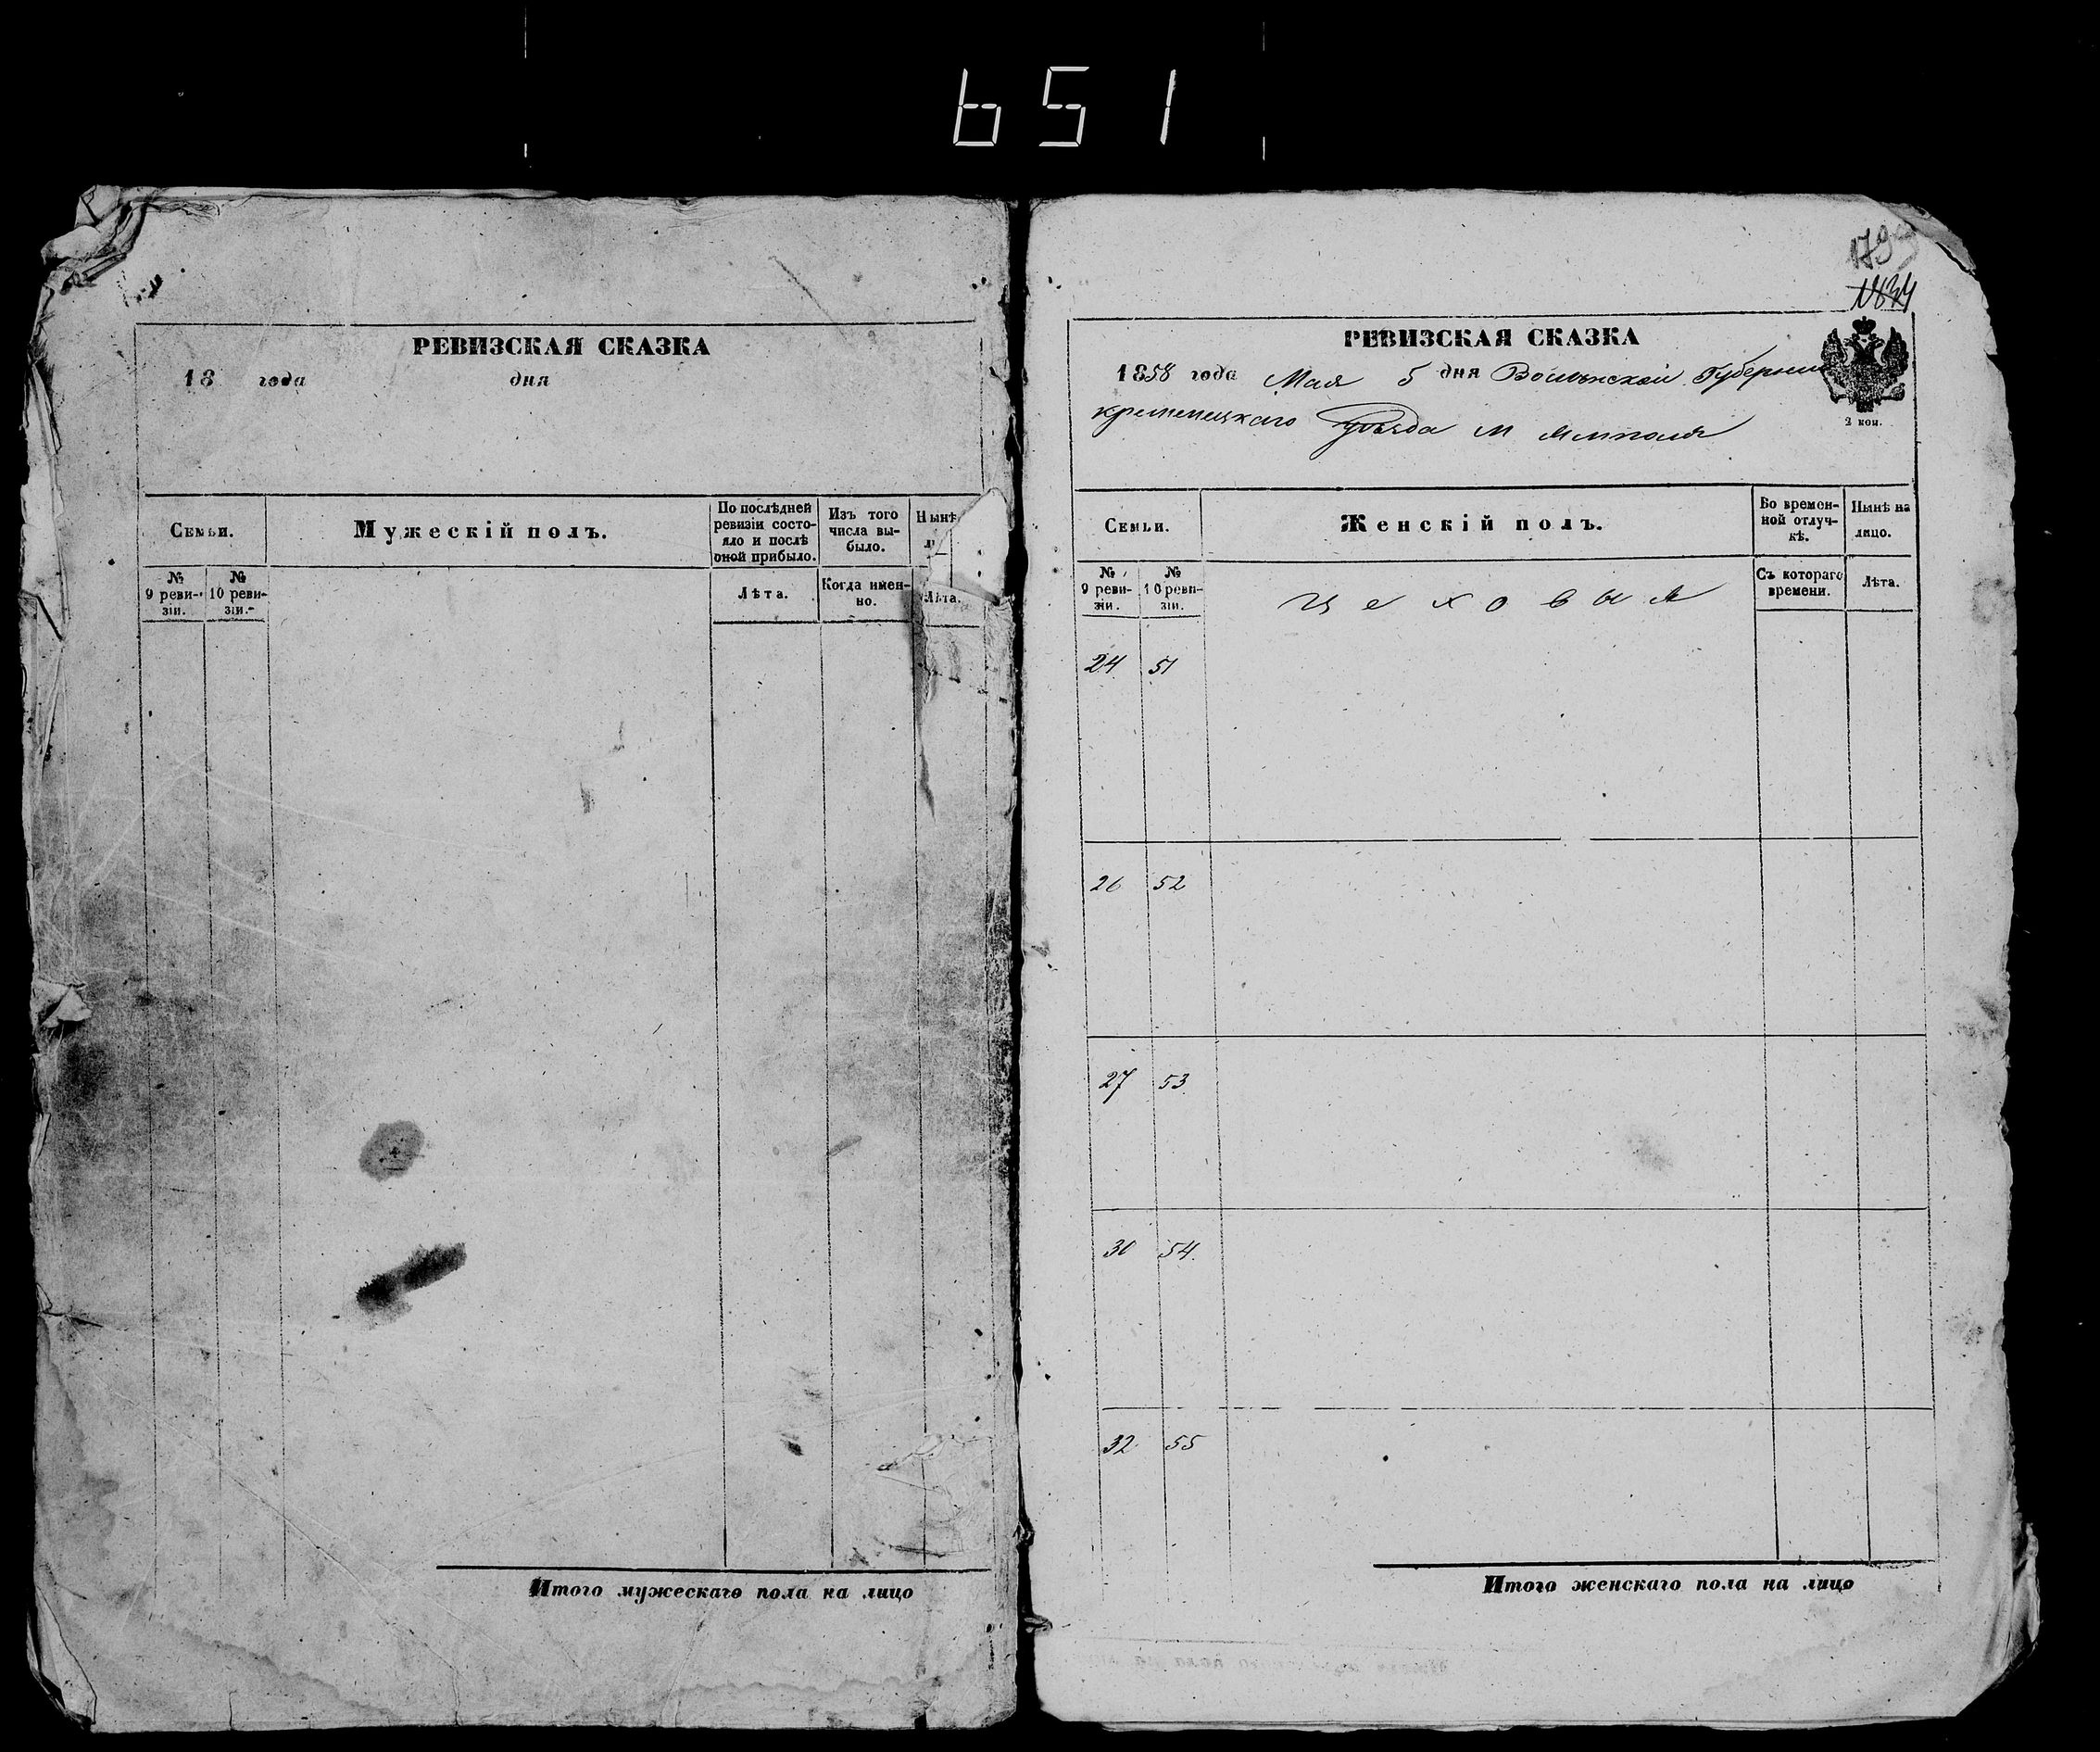 651
РЕВИЗСКАЯ СКАЗКА
18 года дня
Семьи.
Мужескій полъ.
По послѣдней ревизіи состо-
яло и послѣ оной прибыло.
Изъ того числа вы-
было.
Нынѣ
№ 9 реви-
зіи.
№ 10 реви-
зіи.
Лѣта.
Когда имен-
но.
Лѣта.
Итого мужескаго пола на лицо
179
РЕВИЗСКАЯ СКАЗКА
1858 года Мая 5 дня Волынской Губерніи
2 коп.
кременецкаго уѣзда м Ямполя
Семьи.
Женскій полъ.
Во времен-
ной отлуч-
кѣ.
Нынѣ на
лицо.
№ 9 реви-
зіи.
№ 10 реви-
зіи.
цеховыя
Съ котораго
времени.
Лѣта.
24 51
26 52
27 53
30 54.
32 55
Итого женскаго пола на лицо